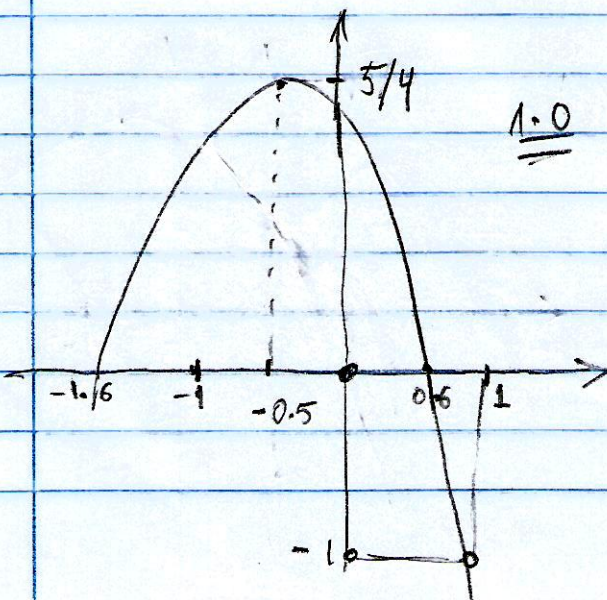 5/4
1.0
-1.6
-1
-0.5
0.6
1
-1